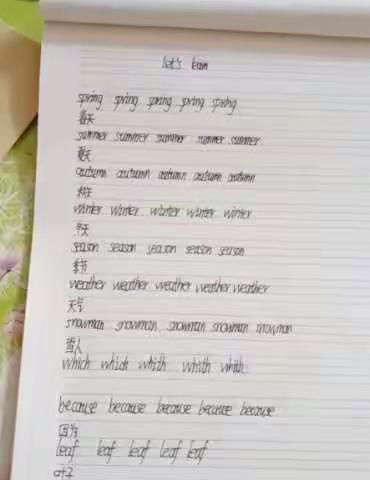 let's learn
spring spring spring spring spring
春天
summer summer summer summer summer
夏天
autumn autumn autumn autumn autumn
秋天
winter winter winter winter winter
冬天
season season season season season
季节
weather weather weather weather weather
天气
snowman snowman snowman snowman snowman
雪人
which which which which which
because because because because because
因为
leaf leaf leaf leaf leaf
叶子